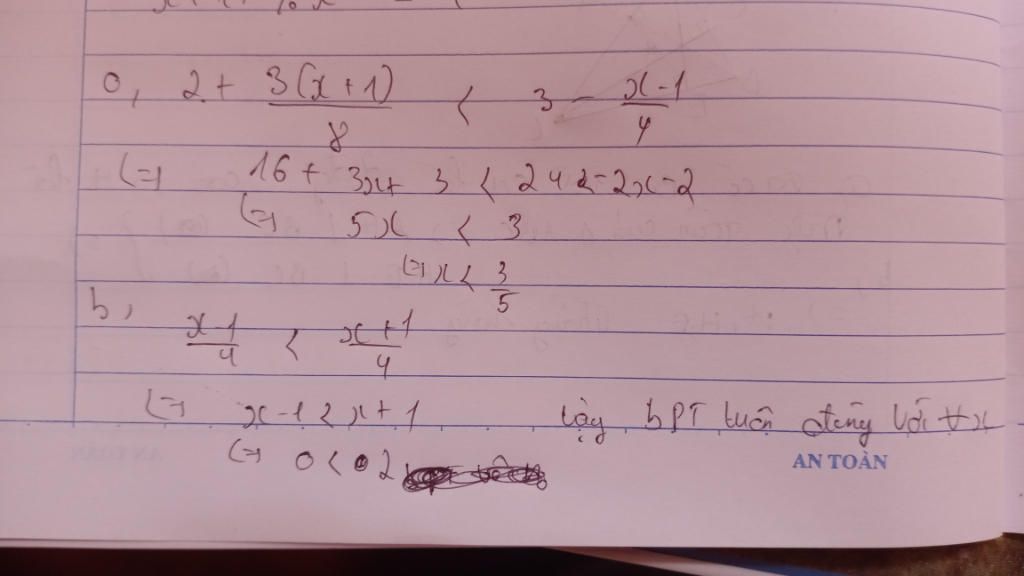 a, 2 + 3(x+1)/8 < 3 - x-1/4
(=) 16 + 3x + 3 < 24 - 2x - 2
(=) 5x < 3
(=) x < 3/5
b, x-1/4 < x+1/4
(=) x-1 < x+1 Vậy bPT luôn đúng với ∀x
(=) 0 < 2
AN TOÀN